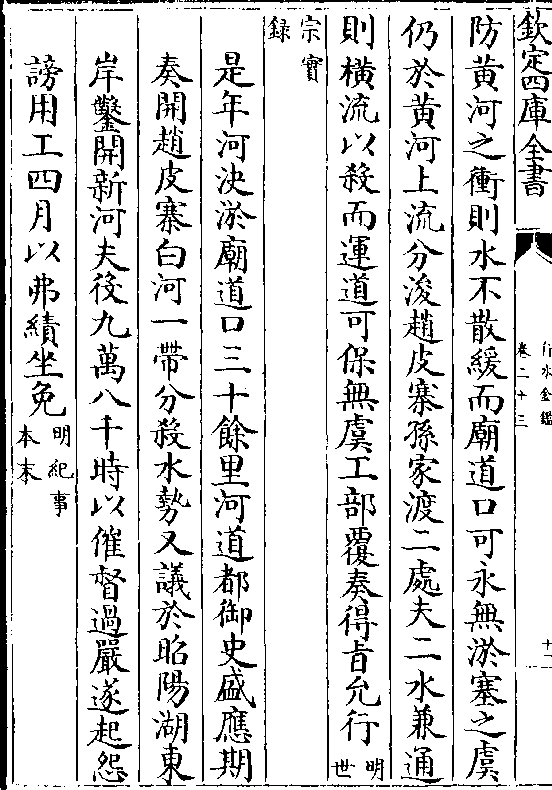 欽定四庫全書
行水金鑑
卷二十三
十一
防黄河之衝則水不散緩而廟道口可永無淤塞之虞
仍於黄河上流分浚趙皮寨孫家渡二處夫二水兼通
則橫流以殺而運道可保無虞工部覆奏得㫖允行明世
宗實録
是年河決淤廟道口三十餘里河道都御史盛應期
奏開趙皮寨白河一帶分殺水勢又議於昭陽湖東
岸鑿開新河夫役九萬八千時以催督過嚴遂起怨
謗用工四月以弗績坐免明紀事本末